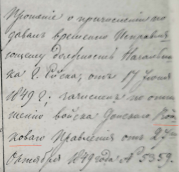 Прошение о причислении по
давалъ временно Исправля
ющему должность Наказн
ка г. Ейска, отъ 17 Июня
1849 г.; зачисленъ по отно
шенію войска Донскаго Вой
коваго Правленія отъ 27
Октября 1849 года № 5359.